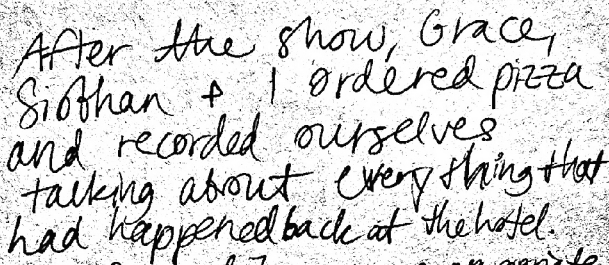 After the show, Grace,
Siobhan + I ordered pizza
and recorded ourselves
talking about everything that
had happened back at the hotel.